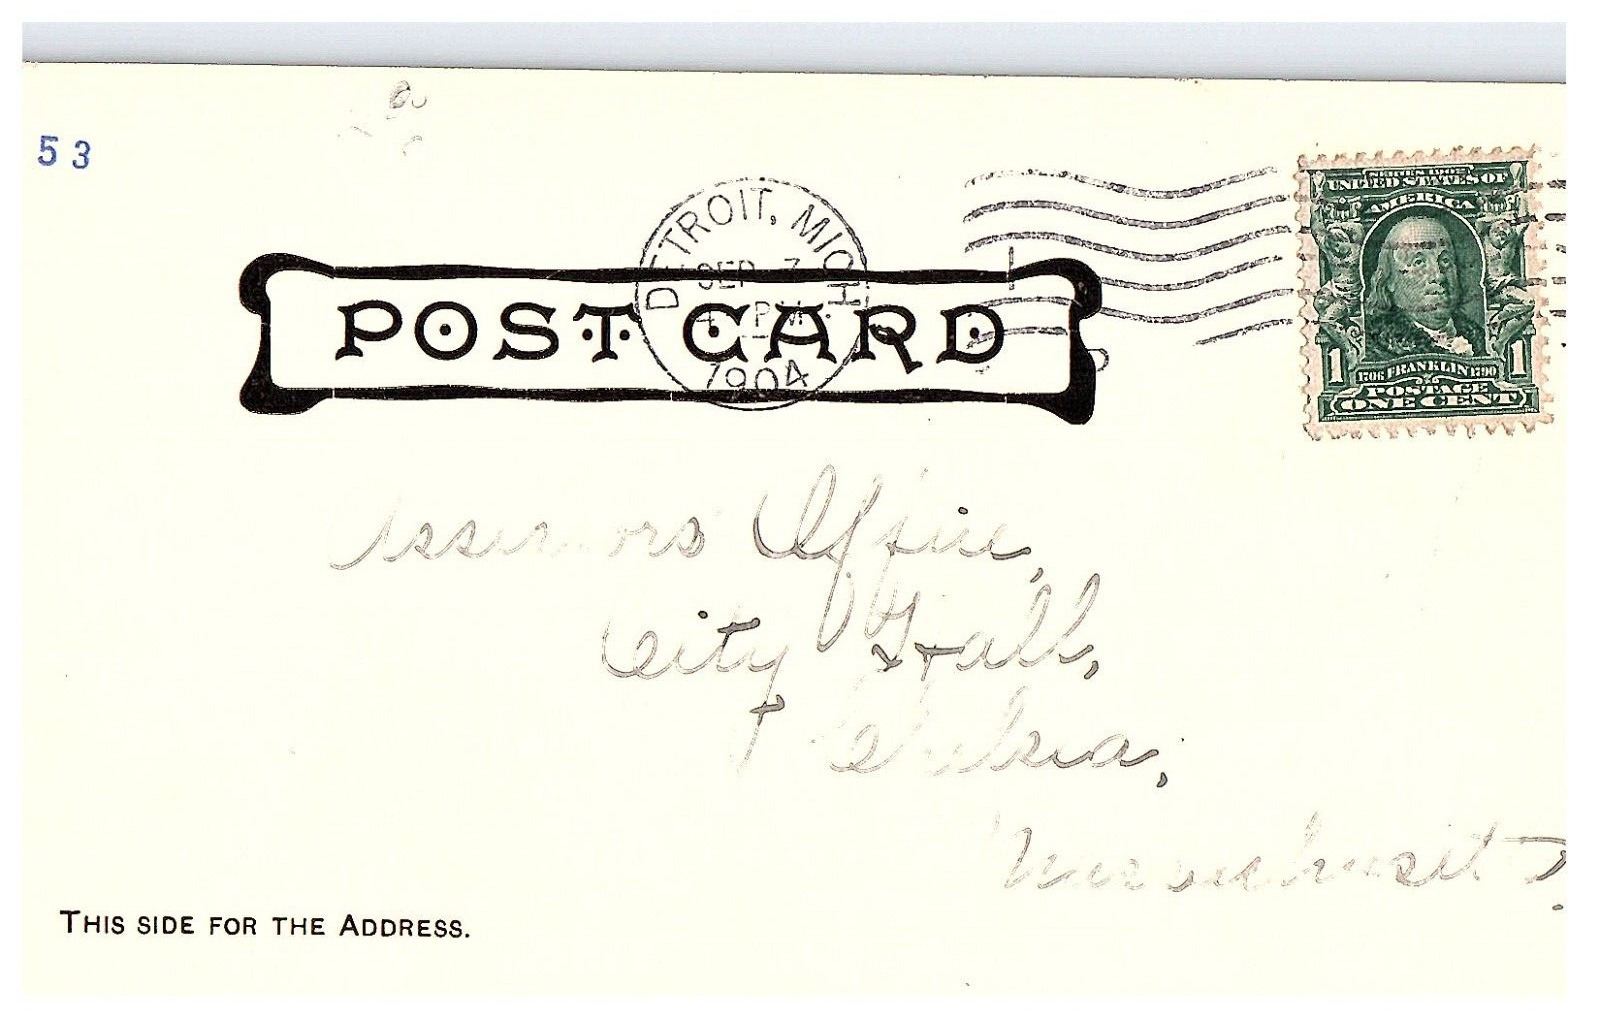 53
DETROIT, MICH.
SEP 7
4 PM
1904
SERIES 1902
UNITED STATES OF
AMERICA
1 1
1706 FRANKLIN 1790
POSTAGE
ONE CENT
POST CARD
Assessors Office,
City Hall,
Chelsea,
Massachusetts.
THIS SIDE FOR THE ADDRESS.